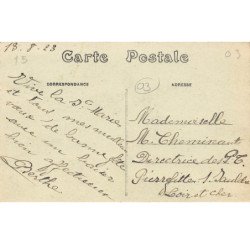 13.8.23
13
03
03
Carte Postale
CORRESPONDANCE
ADRESSE
Vive la Ste Marie
et tous mes meilleurs
vœux de bonne fête
avec un baiser
bien affectueux
Berthe
Mademoiselle
M. Cheminant
Dercetrice des PT
Pierrefitte s.
Loir et Cher